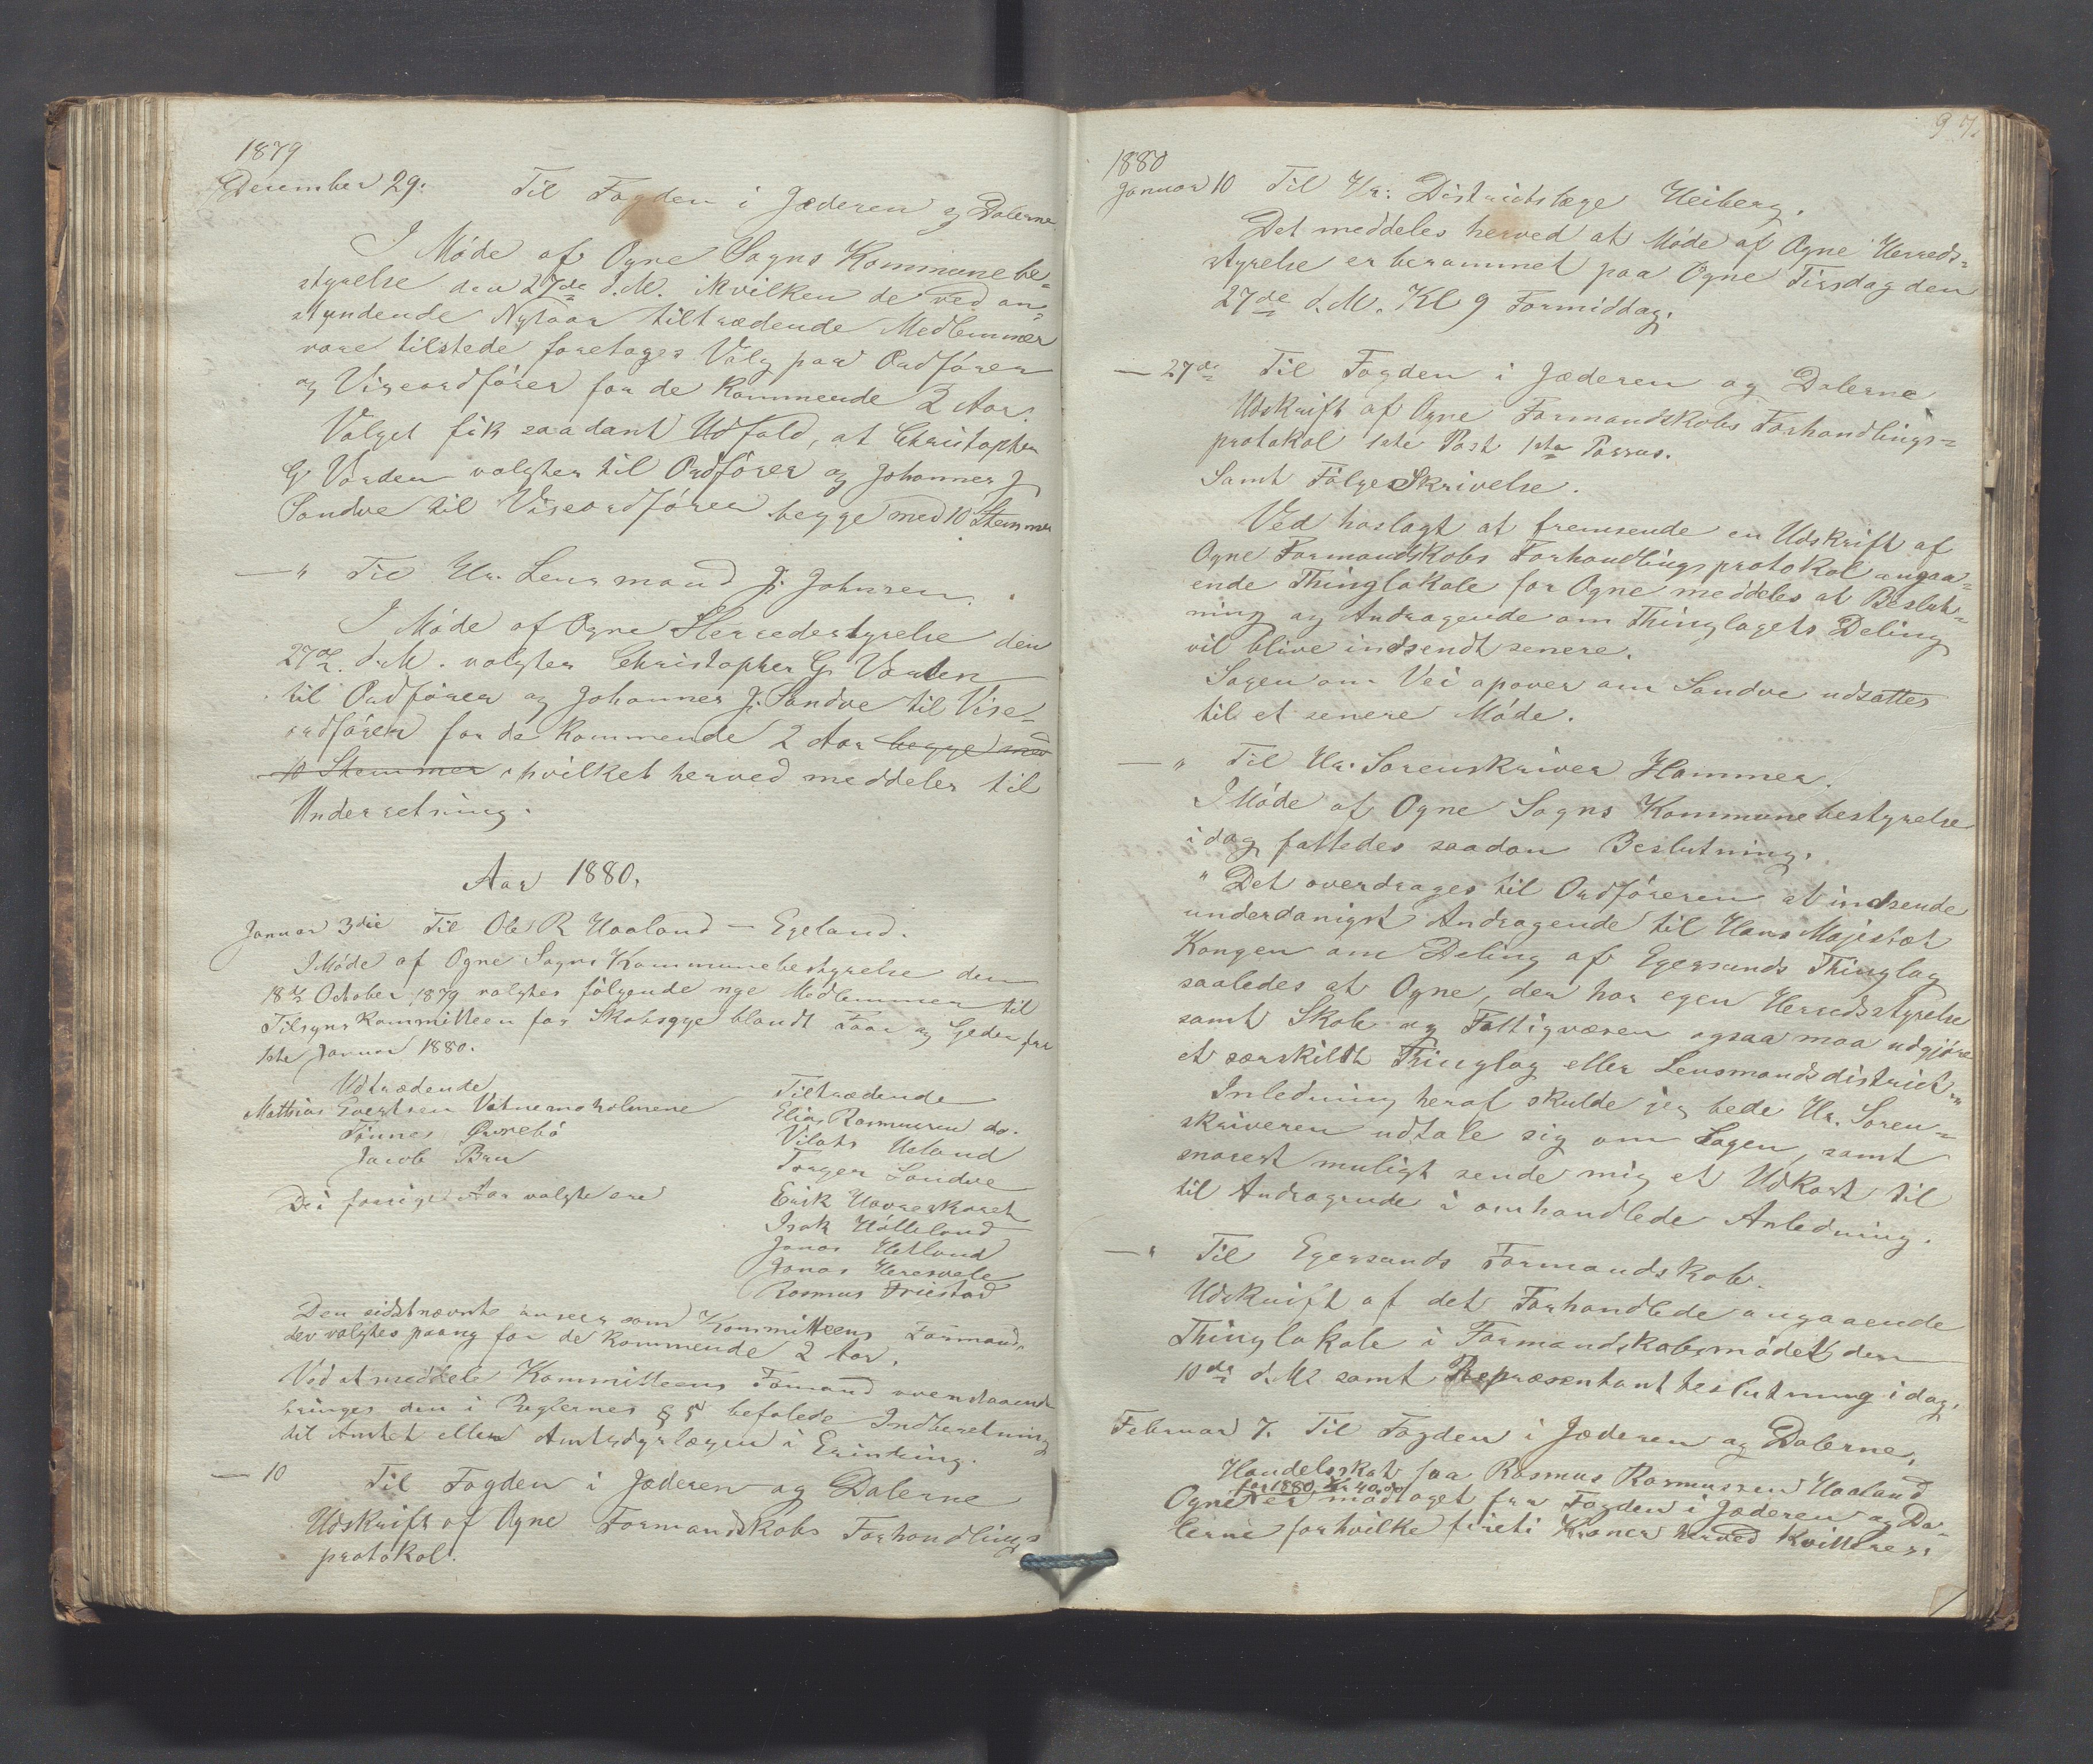 1879
December 29. Til Fogden i Jæderen og Dalerne
I Møde af Ogne Sogns Kommunebe-
styrelse den 27de d.M. ihvilken de ved an-
stundende Nytaar tiltrædende Medlemmer
vare tilstede foretoges Valg paa Ordfører
og Viseordfører for de kommende 2 Aar.
Valget fik saadant Udfald, at Christopher
G Varden valgtes til Ordfører og Johannes J
Sandve til Viseordfører begge med 10 Stemmer
— " Til Hr. Lensmand J. Johnsen.
I Møde af Ogne Herredsstyrelse den
27de d.M. valgtes Christopher G Varden
til Ordfører og Johannes J. Sandve til Vise-
ordfører for de kommende 2 Aar begge med
10 Stemmer, hvilket herved meddeles til
Underretning.
Aar 1880.
Januar 3die Til Ole R Haaland — Egeland.
I Møde af Ogne Sogns Kommunebestyrelse den
18de October 1879 valgtes følgende nye Medlemmer til
Tilsynskommitteen for Skabsyge blandt Faar og Geder fra
1ste Januar 1880.
Udtrædende Tiltrædende
Mathias Evertsen Vatnemoholmene Elias Rasmussen do.
Tønnes Øvrebø Vilats Ueland
Jacob Bru Torger Sandve
De i forrige Aar valgte ere Erik Havreskaret
Isak Hølleland
Jonas Hetland
Jonas Heresvele
Rasmus Friestad
Den sidstnævnte ansees som Kommitteens Formand,
der valgtes paany for de kommende 2 Aar.
Ved at meddele Kommitteens Formand ovenstaaende
bringes den i Reglernes § 5 befalede Indberetning
til Amtet eller Amtsdyrlægen i Erindring.
— 10 Til Fogden i Jæderen og Dalerne
Udskrift af Ogne Formandskabs Forhandlings
protokol.
97.
1880
Januar 10 Til Hr. Districtslæge Heiberg.
Det meddeles herved at Møde af Ogne Herreds-
styrelse er berammet paa Ogne Tirsdag den
27de d.M. Kl 9 Formiddag.
— 27de Til Fogden i Jæderen og Dalerne
Udskrift af Ogne Formandskabs Forhandlings-
protokol 1ste Post 1ste Passus.
Samt FølgeSkrivelse.
Ved hoslagt at fremsende en Udskrift af
Ogne Formandskabs Forhandlingsprotokol angaa-
ende Thinglokale for Ogne meddeles at Beslut-
ning og Andragende om Thinglagets Deling
vil blive indsendt senere.
Sagen om Vei apover om Sandve udsattes
til et senere Møde.
— " Til Hr. Sorenskriver Hammer.
I Møde af Ogne Sogns Kommunebestyrelse
i dag fattedes saadan Beslutning.
" Det overdrages til Ordføreren at indsende
underdanigst Andragende til Hans Majestæt
Kongen om Deling af Egersunds Thinglag
saaledes at Ogne, der har egen Herredsstyrelse
samt Skole og Fattigvæsen ogsaa maa udgjøre
et særskildt Thinglag eller Lensmandsdistrict."
Inledning heraf skulde jeg bede Hr. Soren-
skriveren udtale sig om Sagen, samt
snarest muligt sende mig et Udkast til
til Andragende i omhandlede Anledning.
— " Til Egersunds Formandskab.
Udskrift af det Forhandlede angaaende
Thinglokale i Formandskabsmødet den
10de d.M. samt Repræsentantbeslutning i dag.
Februar 7. Til Fogden i Jæderen og Dalerne.
Handelsskat fra Rasmus Rasmussen Haaland
for 1880, Kr 40,00
Ogne er modtaget fra Fogden i Jæderen og Da-
lerne for hvilke fireti Kroner herved kvitteres.